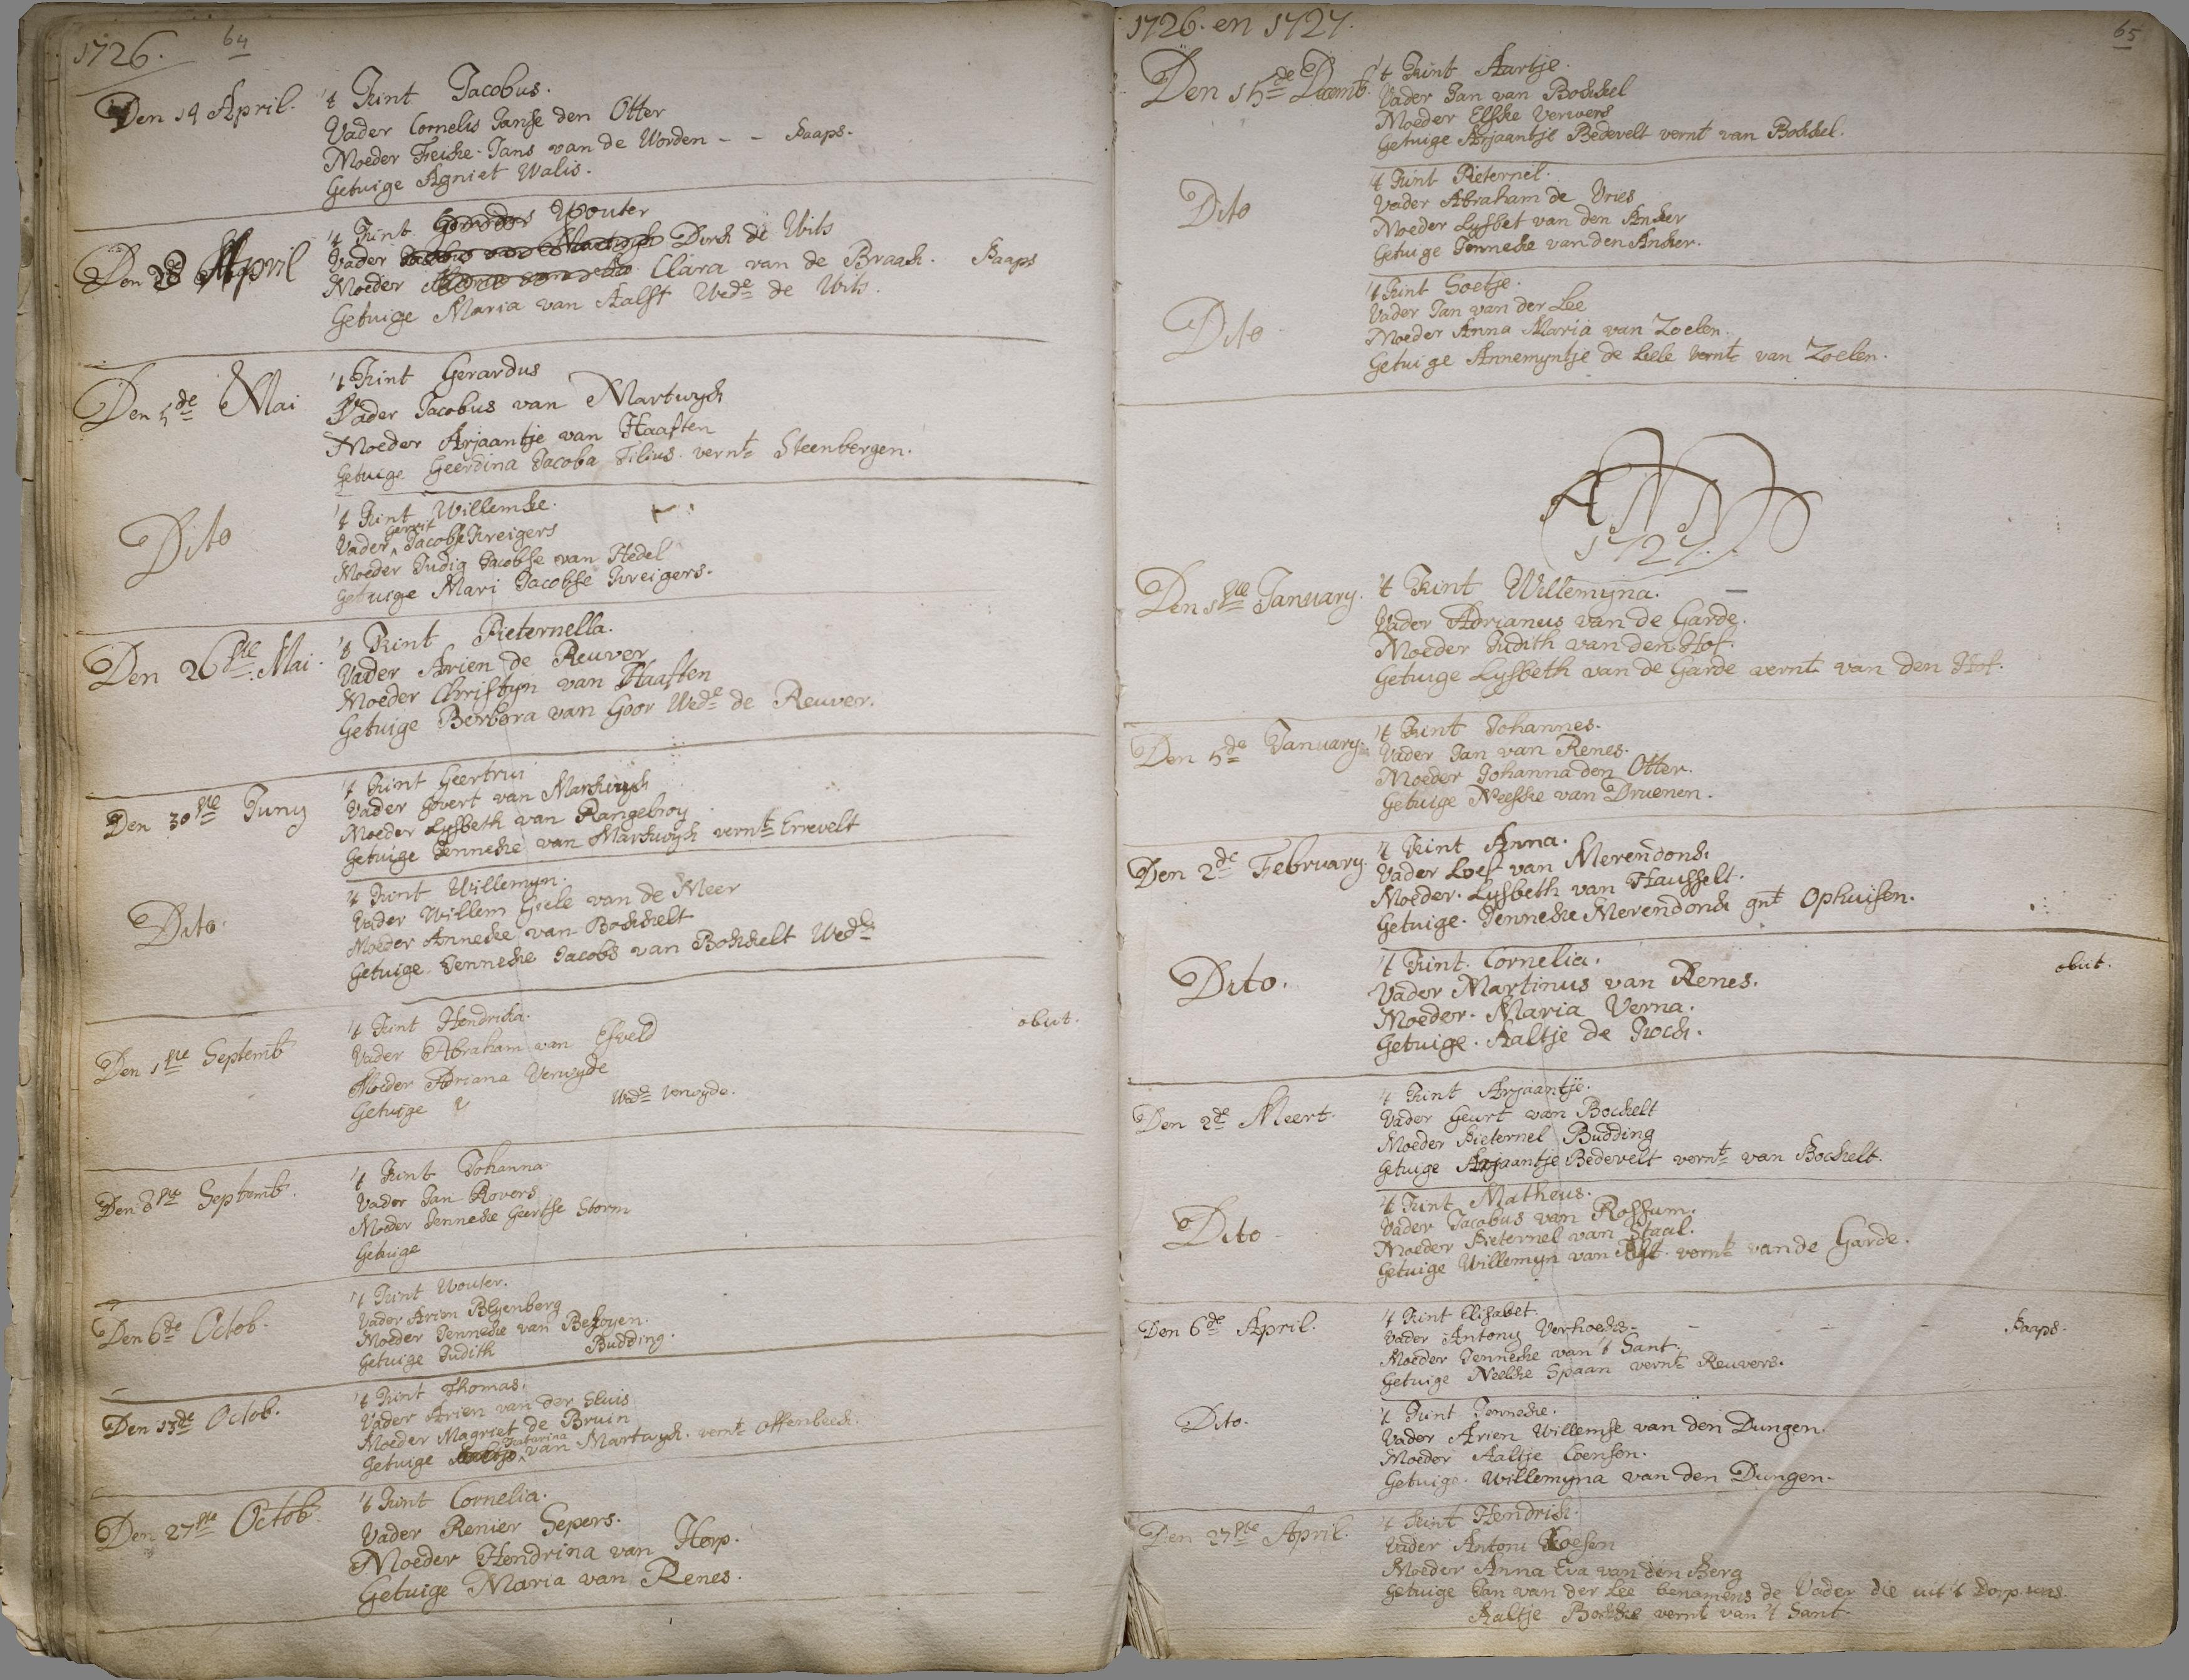 1726. 64
Den 14 April. 't Kint Jacobus.
Vader Cornelis Janse den Otter
Moeder Freike Jans van de Worden - - Paaps.
Getuige Agniet Walis.
Den 28 April 't Kint Wouter
Vader Dirk de Wits
Moeder Clara van de Braak. Paaps
Getuige Maria van Aalst Wede de Wits.
Den 5de Mai 't Kint Gerardus
Vader Jacobus van Martwyk
Moeder Arjaantje van Haaften
Getuige Geerdina Jacoba Filius vernt Steenbergen.
Dito 't Kint Willemke.
Vader Gerrit Jacobse Kreigers
Moeder Judig Jacobse van Hedel
Getuige Mari Jacobse Kreigers.
Den 26ste Mai. 't Kint Pieternella.
Vader Arien de Reuver
Moeder Christyn van Haaften
Getuige Berbera van Goor Wede de Reuver.
Den 30ste Juny 't Kint Geertrui
Vader Govert van Markwyk
Moeder Lysbeth van Rangelroy
Getuige Jenneke van Markwyk vernt Errevelt
Dito. 't Kint Willemyn.
Vader Willem Giele van de Meer
Moeder Anneke van Bokkelt
Getuige Jenneke Jacobs van Bokkelt Wede
Den 1ste Septemb 't Kint Hendrika. obiit.
Vader Abraham van Esveld
Moeder Adriana Verwyde
Getuige Wede Verwyde.
Den 8ste Septemb. 't Kint Johanna
Vader Jan Rovers
Moeder Jenneke Geertse Storm
Getuige
Den 6de Octob. 't Kint Wouter.
Vader Arien Blyenberg
Moeder Jenneke van BeRoyen.
Getuige Judith Budding.
Den 13de Octob. 't Kint Thomas.
Vader Arien van der Sluis
Moeder Magriet de Bruin
Getuige Katarina van Martwyk. vernt Offenbeek.
Den 27ste Octob. 't Kint Cornelia.
Vader Renier Sepers.
Moeder Hendrina van Herp.
Getuige Maria van Renes.
1726. en 1727. 65
Den 15de Decemb. 't Kint Aartje.
Vader Jan van Bokkel
Moeder Elske Verwers
Getuige Arjaantje Bedevelt vernt van Bokkel.
Dito 't Kint Pieternel.
Vader Abraham de Vries
Moeder Lysbet van den Anker
Getuige Jenneke van den Anker.
Dito 't Kint Goetje.
Vader Jan van der Lee
Moeder Anna Maria van Zoelen.
Getuige Annemyntje de Lele vernt van Zoelen.
ANNO
1727.
Den 1ste January. 't Kint Willemyna.
Vader Adrianus van de Garde.
Moeder Judith van den Hof.
Getuige Lysbeth van de Garde vernt van den Hof.
Den 5de January. 't Kint Johannes.
Vader Jan van Renes.
Moeder Johanna den Otter.
Getuige Neeske van Drunen.
Den 2de February. 't Kint Anna.
Vader Loef van Merendonk
Moeder. Lysbeth van Hausselt.
Getuige. Jenneke Merendonk gnt Ophuisen.
Dito. 't Kint. Cornelia. obiit.
Vader Martinus van Renes.
Moeder. Maria Verna.
Getuige. Aaltje de Kock.
Den 2de Meert. 't Kint Arjaantje.
Vader Geurt van Bockelt
Moeder Pieternel Budding
Getuige Arjaantje Bedevelt vernt van Bockelt.
Dito 't Kint Matheus.
Vader Jacobus van Rossum.
Moeder Pieternel van Staal.
Getuige Willemyn van vernt van de Garde.
Den 6de April. 't Kint Elisabet.
Vader Antony Verhoeks - - - - Paaps.
Moeder Jenneke van 't Sant.
Getuige Neelke Spaan vernt Reuvers.
Dito. 't Kint Jenneke.
Vader Arien Willemse van den Dungen.
Moeder Aaltje Coensen.
Getuige. Willemyna van den Dungen.
Den 27ste April. 't Kint Hendrik.
Vader Antoni
Moeder Anna Eva van den Berg
Getuige Jan van der Lee benamens de Vader die uit 't Dorp was.
Aaltje Bokkel vernt van 't Sant.